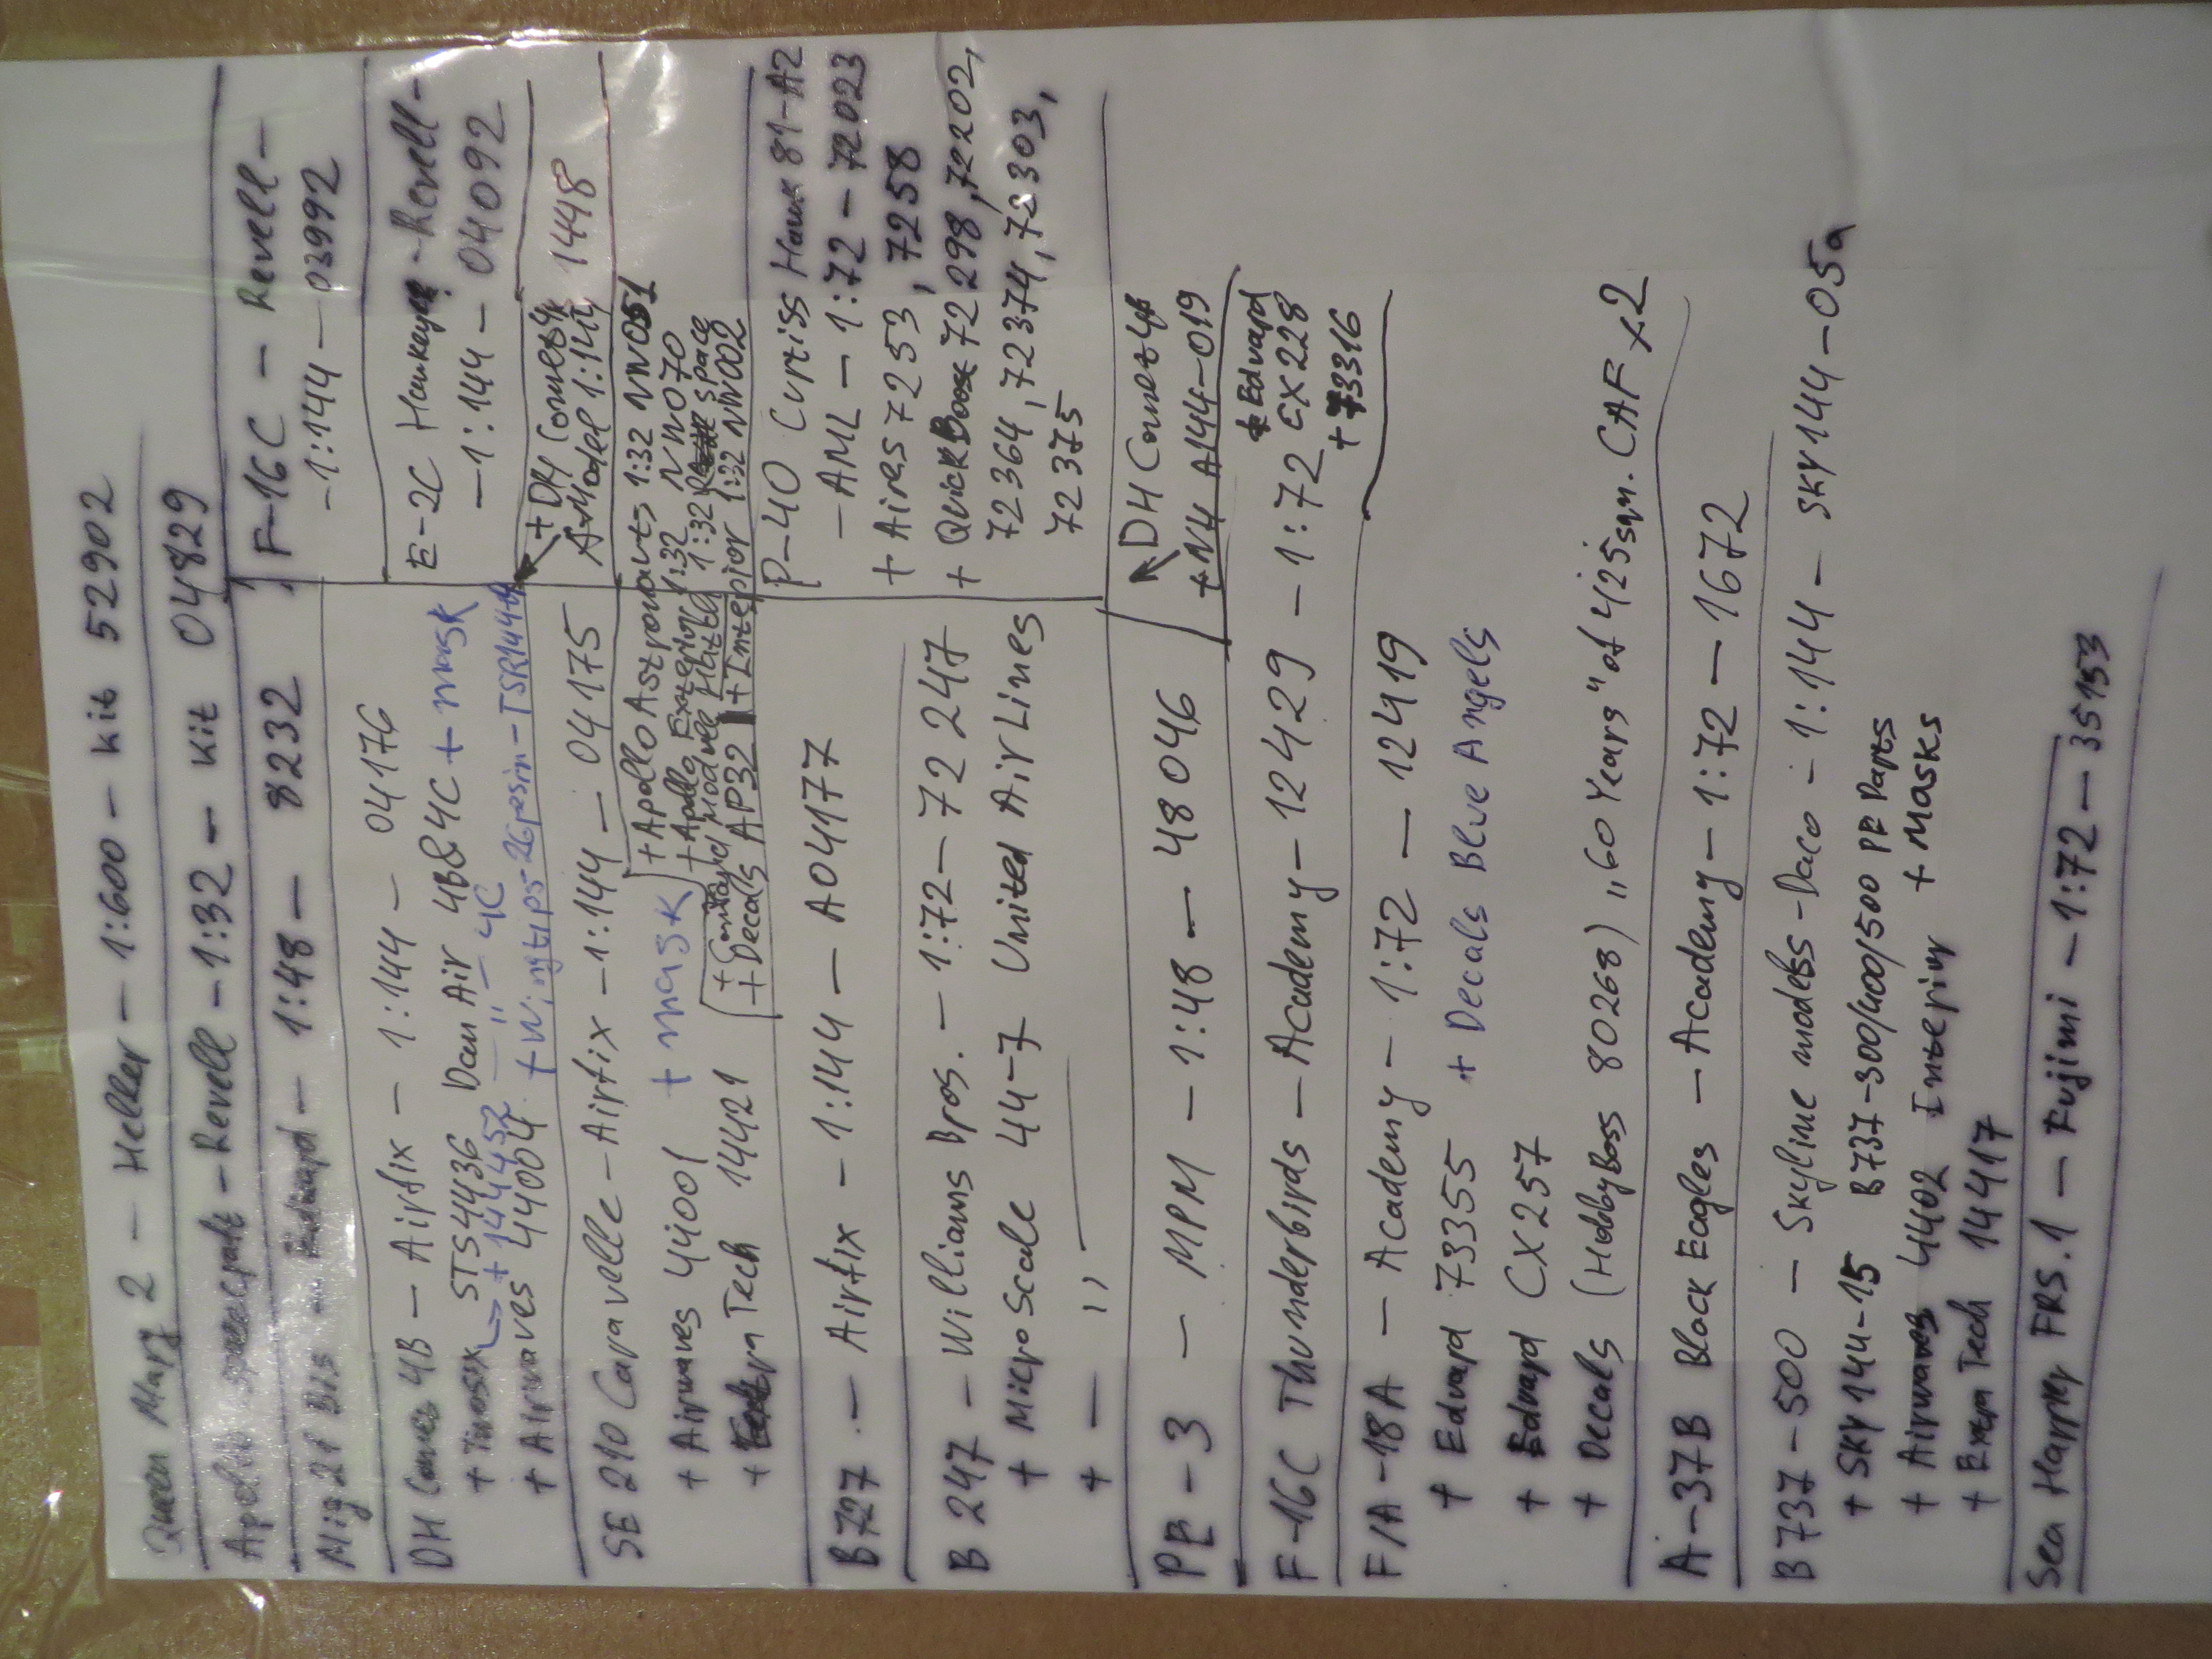 Queen Mary 2 - Heller - 1:600 - kit 52902
Apollo - Revell - 1:32 - kit 04829
Mig 21 Bis - Eduard - 1:48 - 8232
F-16C - Revell -
- 1:144 - 039992
DH Comet 4B - Airfix - 1:144 - 04176
+ STS4436 Dan Air 4B&4C + mask
+ 144452 - " - 4C
+ Airwaves 44004 + Wingtips - 2G resin - TSR144
E-2C Hawkeye - Revell -
- 1:144 - 04092
+ DH Comet 4
A-Model 1:144 1448
SE 210 Caravelle - Airfix - 1:144 - 04175
+ Airwaves 44001 + mask
+ Extra Tech 14421
+ Apollo Astronauts 1:32 NW051
+ Apollo Exterior 1:32 NW070
+ Command Module 1:32 space
+ Decals AP32 + Interior 1:32 NW002
B727 - Airfix - 1:144 - A04177
P-40 Curtiss Hawk 81-A2
- AML - 1:72 - 72023
+ Aires 7253, 7258
+ QuickBoost 72298, 72202,
72364, 72374, 72303,
72375
B 247 - Williams Bros. - 1:72 - 72 247
+ MicroScale 44-7 United AirLines
+ - " -
PE - 3 - MPM - 1:48 - 48046
DH Comet 4
+ NH A144-019
F-16C Thunderbirds - Academy - 12429 - 1:72
+ Eduard
CX228
+ 73316
F/A-18A - Academy - 1:72 - 12419
+ Eduard 73355 + Decals Blue Angels
+ Eduard CX257
+ Decals (HobbyBoss 80268) „60 Years" of 425 sqn. CAF x2
A-37B Black Eagles - Academy - 1:72 - 1672
B737-500 - Skyline models - Daco - 1:144 - SKY144-05a
+ SKY 144-15 B737-300/400/500 PE Parts
+ Airwaves 4402 Interior + Masks
+ Extra Tech 14417
Sea Harrier FRS.1 - Fujimi - 1:72 - 35153